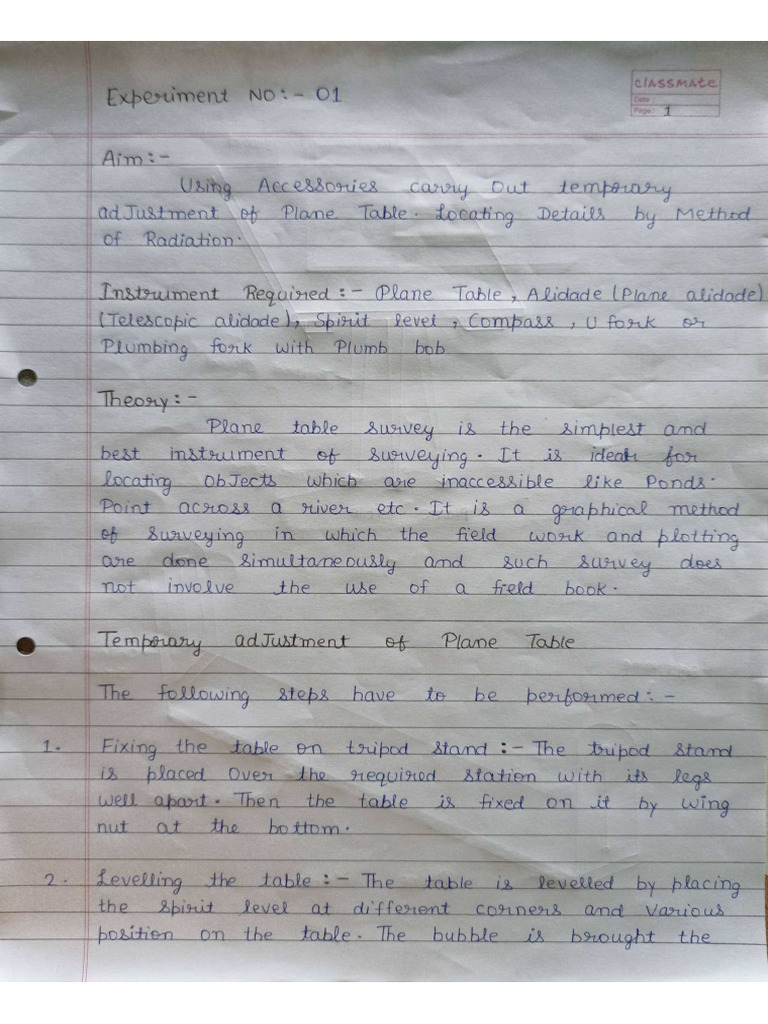 Experiment NO:- 01
classmate
Date :
Page : 1
Aim:-
Using Accessories carry out temporary
adJustment of Plane Table. Locating Details by Method
of Radiation.
Instrument Required:- Plane Table, Alidade (Plane alidade)
(Telescopic alidade), Spirit level, Compass, U fork or
Plumbing fork with Plumb bob
Theory:-
Plane table survey is the simplest and
best instrument of surveying. It is for
locating ObJects which are inaccessible like Ponds.
Point across a river etc. It is a graphical method
of surveying in which the field work and plotting
are done simultaneously and such survey does
not involve the use of a field book.
Temporary adJustment of Plane Table
The following steps have to be performed:-
1. Fixing the table on tripod stand:- The tripod stand
is placed Over the required station with its legs
well apart. Then the table is fixed on it by wing
nut at the bottom.
2. Levelling the table:- The table is levelled by placing
the spirit level at different corners and various
position on the table. The bubble is brought the